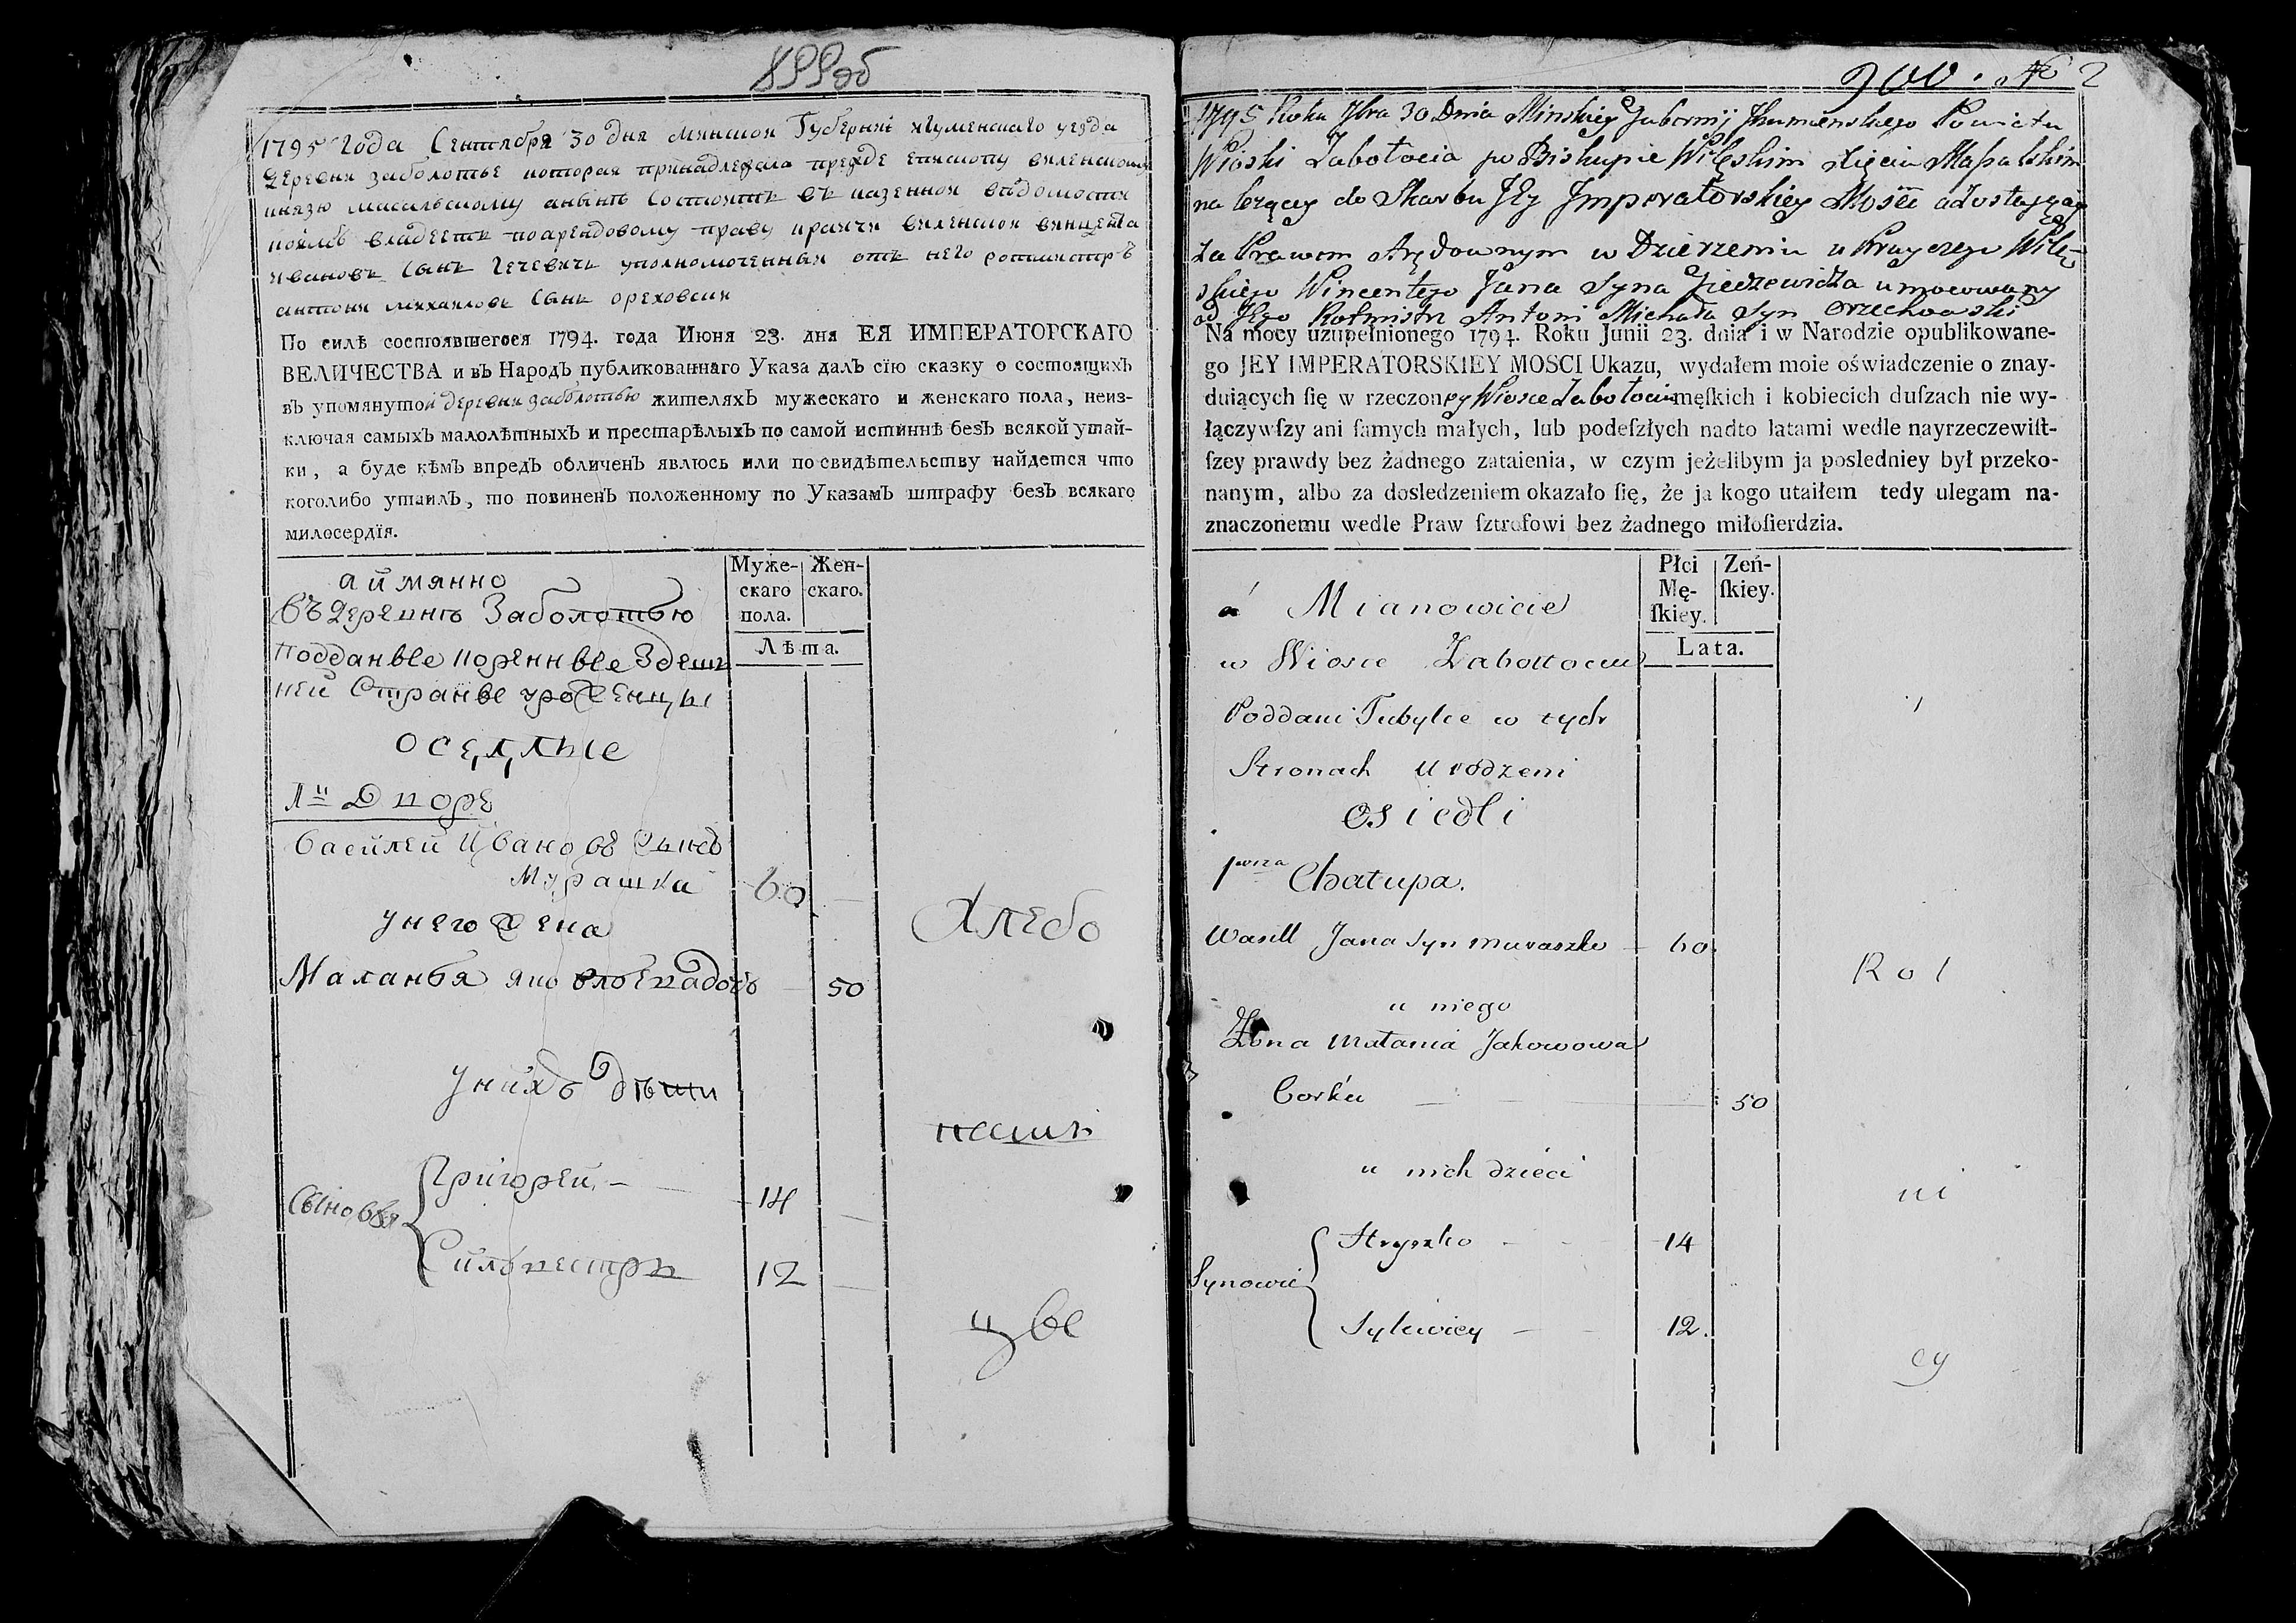 899об
1795 года Сентября 30 дня минской Губернiи игуменскаго уезда
Деревни заболотье которая принадлежала прежде епископу виленскому
князю масальскому а нынѣ состоитъ въ казенной вѣдомости
коимъ владеетъ по арендовому праву крайчи виленской винцента
ивановъ сынъ гечевичъ уполномоченный отъ него ротмистръ
антони михайловъ сынъ ореховски
По силѣ состоявшегося 1794. года Июня 23. дня ЕЯ ИМПЕРАТОРСКАГО
ВЕЛИЧЕСТВА и въ Народъ публикованнаго Указа далъ сїю сказку о состоящихъ
въ упомянутой деревни заболотью жителяхъ мужескаго и женскаго пола, неиз-
ключая самыхъ малолѣтныхъ и престарѣлыхъ по самой истиннѣ безъ всякой утай-
ки, а буде кѣмъ впредъ обличенъ явлюсь или по свидѣтельству найдется что
коголибо утаилъ, то повиненъ положенному по Указамъ штрафу безъ всякаго
милосердїя.
Муже-
скаго
пола.
Жен-
скаго.
Лѣта.
а иймянно
въ деревнѣ Заболотью
подданые коренные здеш
ней Страны уроженцы
оседлые
1й Дворе
Василей Ивановъ сынъ
Мурашка 60
у него жена
Маланья яковлевадочь 50
у нихъ дѣти
Сыновья
Григорей 14
Силвестръ 12
Хлебо
паш
цые
900. No 2
1795 Roku 7bra 30 Dnia Minskiey Gubernij Jhumenskiego Powiatu
Wioski Zabołocia po Biskupie Wileskim Xięciu Massalskim
należącey do Skarbu Jey Imperatorskiey Mości a zostaiącey
za Prawem Arędownym w Dzierżeniu u Krayczego Wileń
skiego Wincentego Jana Syna Gieczewicza umocowany
od Jego Rotmistr Antoni Michała Syn Orzechowski
Na mocy uzupełnionego 1794. Roku Junii 23. dnia i w Narodzie opublikowane-
go JEY IMPERATORSKIEY MOSCI Ukazu, wydałem moie oświadczenie o znay-
duiących ſię w rzeczoney Wiosce Zabołociu męſkich i kobiecich duſzach nie wy-
łączywſzy ani ſamych małych, lub podeſzłych nadto latami wedle nayrzeczewiſt-
ſzey prawdy bez żadnego zataienia, w czym jeżelibym ja posledniey był przeko-
nanym, albo za dosledzeniem okazało ſię, że ja kogo utaiłem tedy ulegam na-
znaczonemu wedle Praw ſztrafowi bez żadnego miłoſierdzia.
Płci
Mę-
ſkiey.
Zeń-
ſkiey.
Lata.
á Mianowicie
w Wiosce Zabołociu
Poddani Tubylce w tych
Stronach urodzeni
Osiedli
1wsza Chałupa.
Wasill Jana Syn Muraszko 60.
u niego
Żona Małania Jakowowa
Corka 50
u nich dzieci
Synowie
Hryszko 14
Sylwiey 12.
Rol
ni
cy